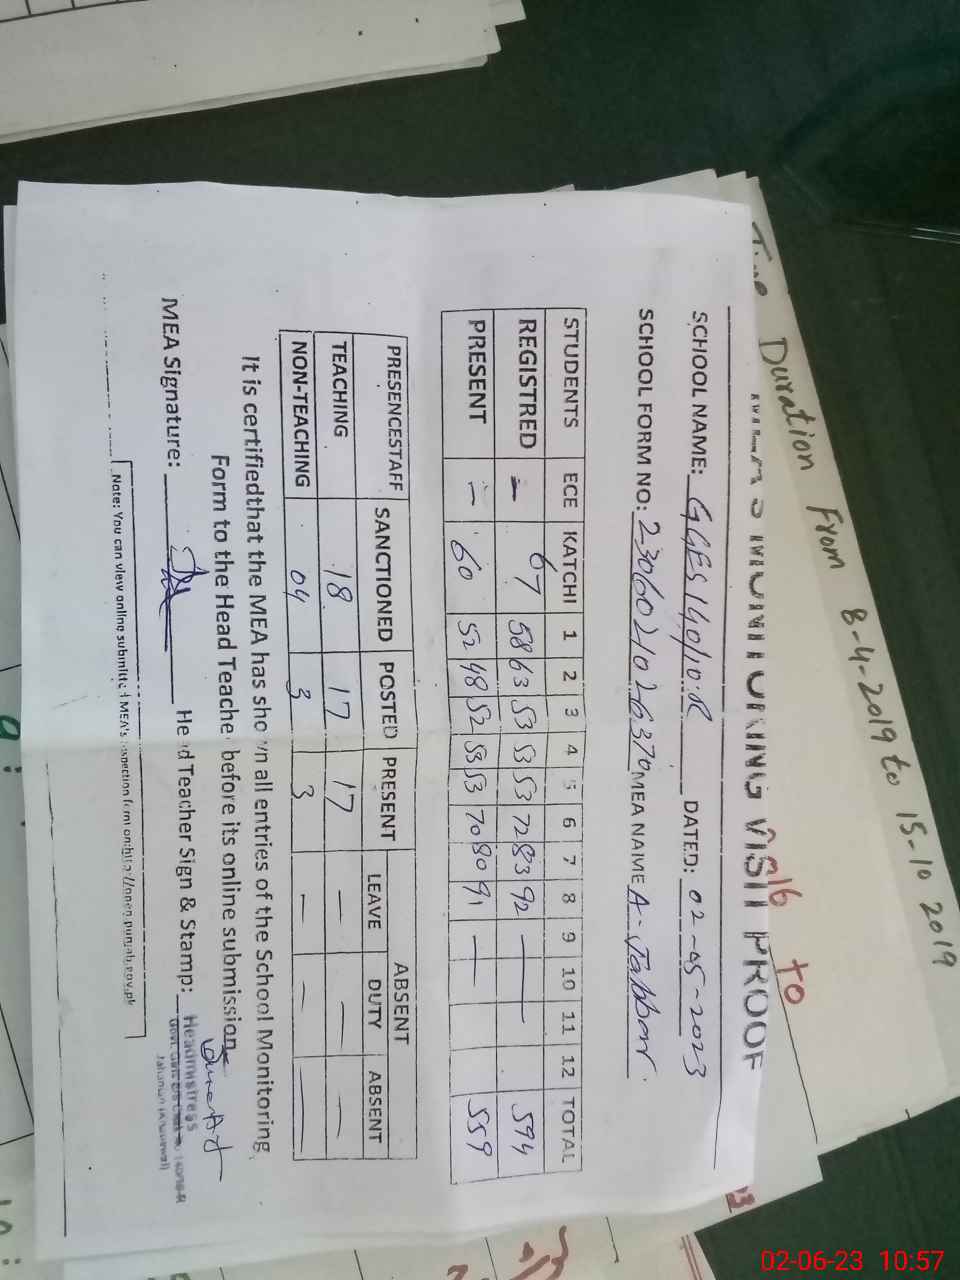 Duration From 8-4-2019 to 15-10 2019
to
MONITORING VISIT PROOF
SCHOOL NAME: GGES 140/10-R DATED: 02-05-2023
SCHOOL FORM NO: 2306021026370 MEA NAME A. Jabbar
STUDENTS ECE KATCHI 1 2 3 4 5 6 7 8 9 10 11 12 TOTAL
REGISTRED - 67 58 63 53 53 53 72 83 92 — 594
PRESENT - 60 52 48 52 53 53 70 80 91 — 559
PRESENCESTAFF SANCTIONED POSTED PRESENT ABSENT
LEAVE DUTY ABSENT
TEACHING 18 17 17 — — —
NON-TEACHING 04 3 3 — — —
It is certifiedthat the MEA has shown all entries of the School Monitoring
Form to the Head Teacher before its online submission.
MEA Signature: Head Teacher Sign & Stamp:
Headmistress
Note: You can view online submitted MEA's inspection form on
02-06-23 10:57